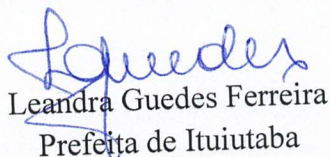 Leandra Guedes Ferreira
Prefeita de Ituiutaba